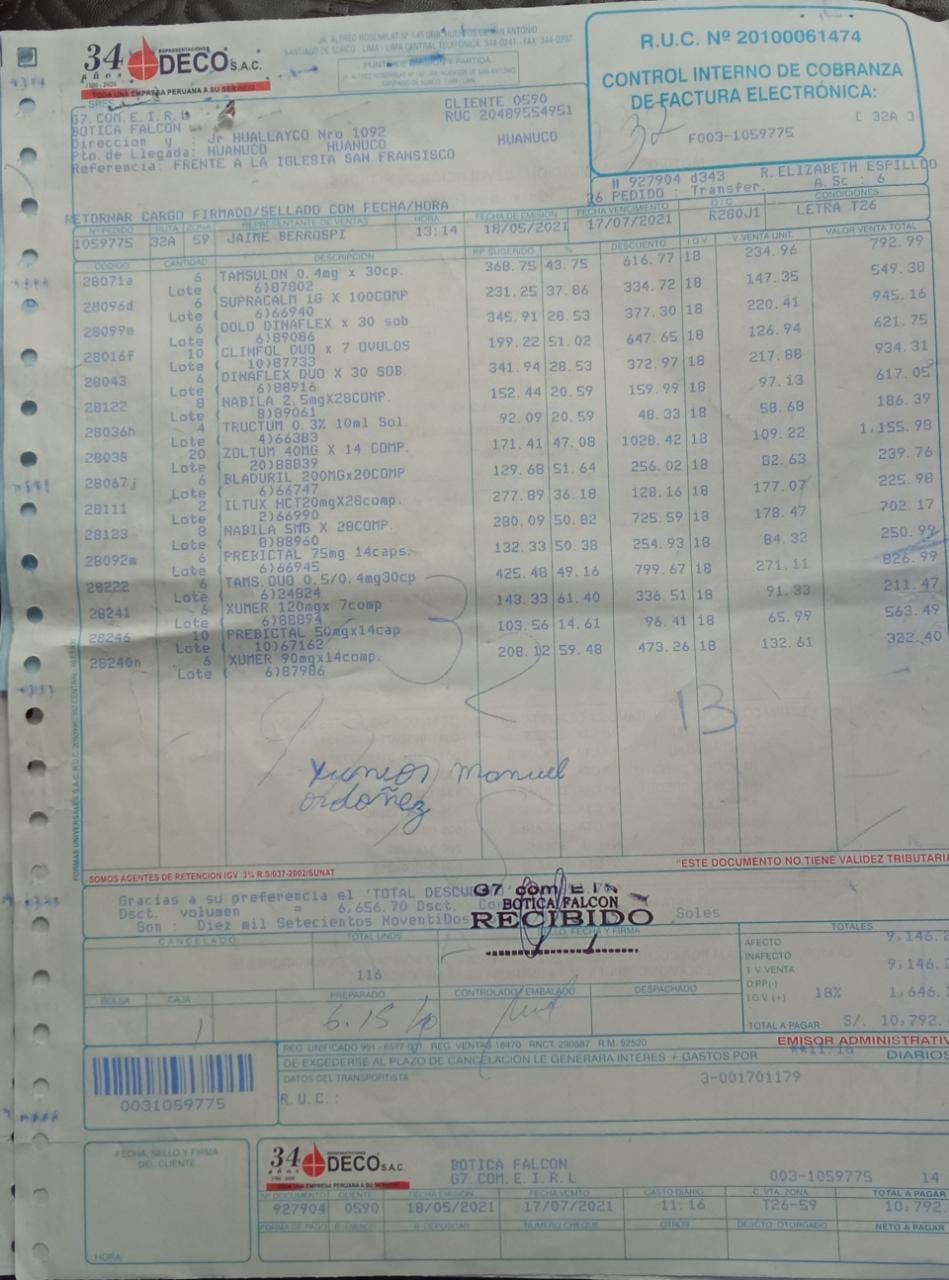 34 años REPRESENTACIONES DECO S.A.C.
TODA UNA EMPRESA PERUANA A SU SERVICIO
JR. ALFRED ROSENBLAT Nº 145 URB. HUERTOS DE SAN ANTONIO
SANTIAGO DE SURCO - LIMA - LIMA CENTRAL TELEFÓNICA: 344-0241 - FAX: 344-0207
PUNTO DE PARTIDA
R.U.C. Nº 20100061474
CONTROL INTERNO DE COBRANZA
DE FACTURA ELECTRÓNICA:
[ 32A ]
F003-1059775
SRES.
G7.COM.E.I.R.L CLIENTE 0590
BOTICA FALCON RUC 20489554951
Direccion y Jr HUALLAYCO Nro 1092
Pto.de Llegada: HUANUCO HUANUCO HUANUCO
Referencia: FRENTE A LA IGLESIA SAN FRANSISCO
# 927904 d343 R.ELIZABETH ESPILLCO
26 PEDIDO : Transfer. A.Sc : 6
RETORNAR CARGO FIRMADO/SELLADO CON FECHA/HORA
Nº PEDIDO RUTA ZONA REPRESENTANTE DE VENTAS HORA FECHA DE EMISION FECHA VENCIMIENTO O/C CONDICIONES
1059775 32A 59 JAIME BERROSPI 13:14 18/05/2021 17/07/2021 R280J1 LETRA T26
CODIGO CANTIDAD DESCRIPCION RP SUGERIDO % DESCUENTO I.G.V V VENTA UNIT. VALOR VENTA TOTAL
28071a 6 TAMSULON 0.4mg x 30cp. 368.75 43.75 616.77 18 234.96 792.99
Lote ( 6)87802
28096d 6 SUPRACALM 1G X 100COMP 231.25 37.86 334.72 18 147.35 549.38
Lote ( 6)66940
28099e 6 DOLO DINAFLEX x 30 sob 345.91 28.53 377.30 18 220.41 945.16
Lote ( 6)89086
28016f 10 CLINFOL DUO x 7 OVULOS 199.22 51.02 647.65 18 126.94 621.75
Lote ( 10)87733
28043 6 DINAFLEX DUO X 30 SOB. 341.94 28.53 372.97 18 217.88 934.31
Lote ( 6)88916
28122 8 NABILA 2.5mgX28COMP. 152.44 20.59 159.99 18 97.13 617.05
Lote ( 8)89061
28036h 4 TRUCTUM 0.3% 10ml Sol. 92.09 20.59 48.33 18 58.68 186.39
Lote ( 4)66383
28038 20 ZOLTUM 40MG X 14 COMP. 171.41 47.08 1028.42 18 109.22 1,155.98
Lote ( 20)88839
28067j 6 BLADURIL 200MGx20COMP 129.68 51.64 256.02 18 82.63 239.76
Lote ( 6)66747
28111 2 ILTUX HCT20mgX28comp. 277.89 36.18 128.16 18 177.07 225.98
Lote ( 2)66990
28123 8 NABILA 5MG X 28COMP. 280.09 50.82 725.59 18 178.47 702.17
Lote ( 8)88960
28092m 6 PREBICTAL 75mg 14caps. 132.33 50.38 254.93 18 84.32 250.99
Lote ( 6)66945
28222 6 TAMS.DUO 0.5/0.4mg30cp 425.48 49.16 799.67 18 271.11 826.99
Lote ( 6)24824
28241 6 XUMER 120mgx 7comp 143.33 61.40 336.51 18 91.33 211.47
Lote ( 6)88894
28246 10 PREBICTAL 50mgx14cap 103.56 14.61 96.41 18 65.99 563.49
Lote ( 10)67162
28240n 6 XUMER 90mgx14comp. 208.12 59.48 473.26 18 132.61 322.40
Lote ( 6)87986
13
Manuel
ordoñez
SOMOS AGENTES DE RETENCION IGV 3% R.S/037-2002/SUNAT
"ESTE DOCUMENTO NO TIENE VALIDEZ TRIBUTARIA
Gracias a su preferencia el 'TOTAL DESCU
Dsct. volumen = 6,656.70 Dsct. Co
Son : Diez mil Setecientos NoventiDos Soles
G7 com E I R
BOTICA FALCON
RECIBIDO
CANCELADO TOTAL UNDS. SELLO, FECHA Y FIRMA TOTALES
116
AFECTO 9,146.2
INAFECTO
T.V. VENTA 9,146.2
D.P.P.(-)
I.G.V. (+) 18% 1,646.
TOTAL A PAGAR S/. 10,792.
BOLSA CAJA PREPARADO CONTROLADO/EMBALADO DESPACHADO
1
EMISOR ADMINISTRATIV
REG. UNIFICADO 951 - 6577-001 REG. VENTAS 16470 RNCT. 290687 R.M. 52520
DE EXCEDERSE AL PLAZO DE CANCELACION LE GENERARA INTERES + GASTOS POR **11.16 DIARIOS
DATOS DEL TRANSPORTISTA 3-001701179
R.U.C.:
0031059775
FECHA, SELLO Y FIRMA
DEL CLIENTE
HORA:
34 años REPRESENTACIONES DECO S.A.C.
TODA UNA EMPRESA PERUANA A SU SERVICIO
BOTICA FALCON
G7.COM.E.I.R.L 003-1059775 14
Nº DOCUMENTO CLIENTE FECHA EMISION FECHA VCMTO GASTO DIARIO C. VTA. ZONA TOTAL A PAGAR
927904 0590 18/05/2021 17/07/2021 11.16 T26-59 10,792.
FORMA DE PAGO B. EMISOR B. DEPOSITAR NUMERO CHEQUE OTROS DESCTO. OTORGADO NETO A PAGAR